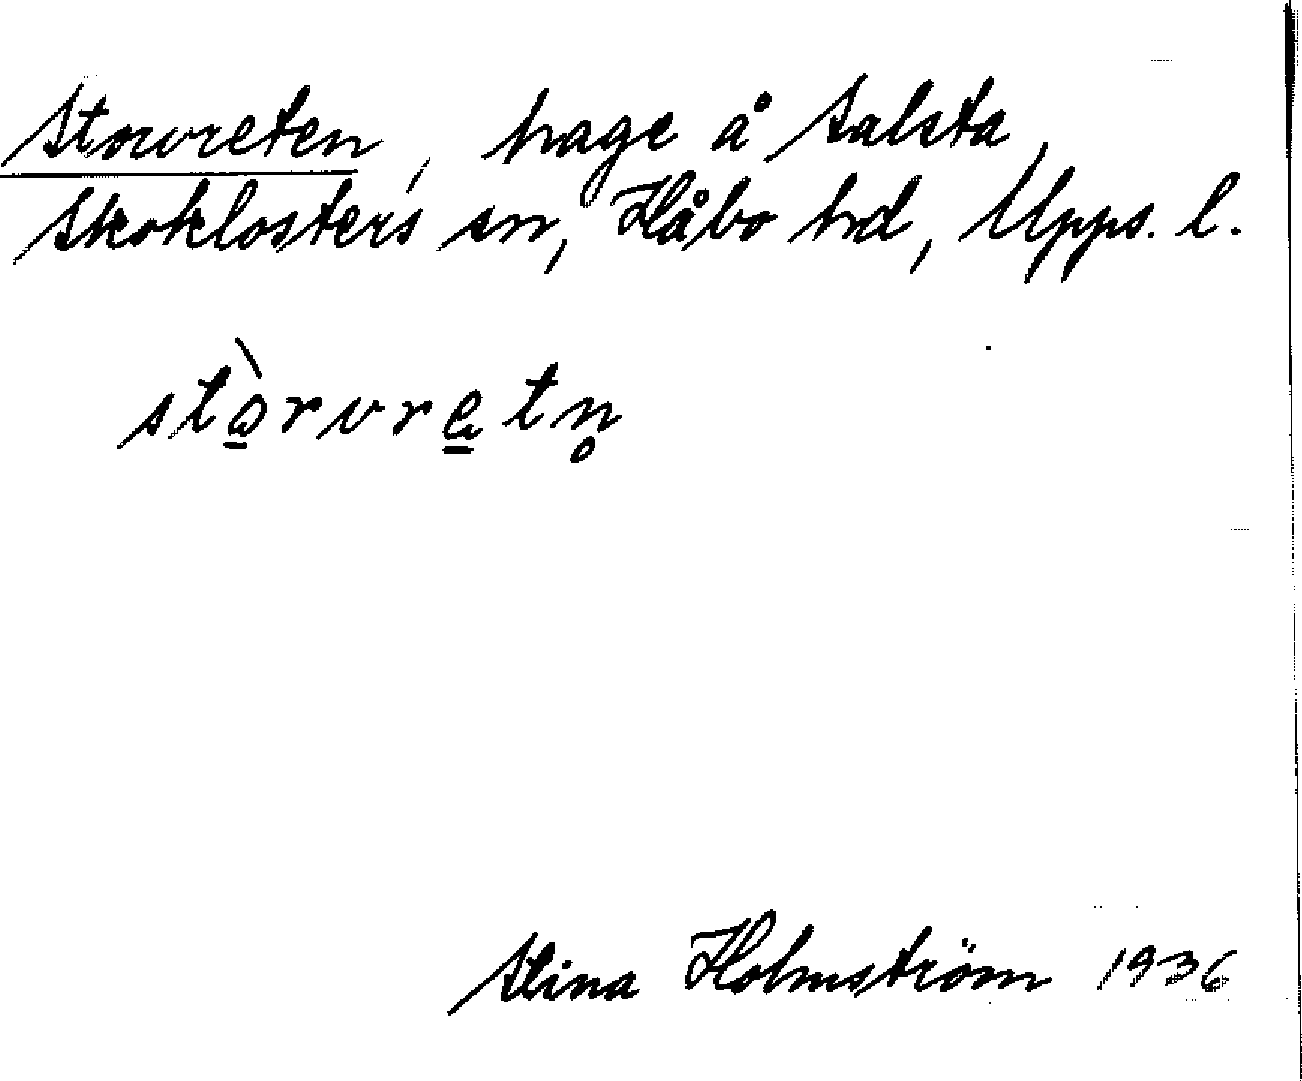 Storvreten, hage å Salsta,
Skoklosters sn, Håbo hd, Upps. l.
stòrvretn̥
Stina Holmström 1936